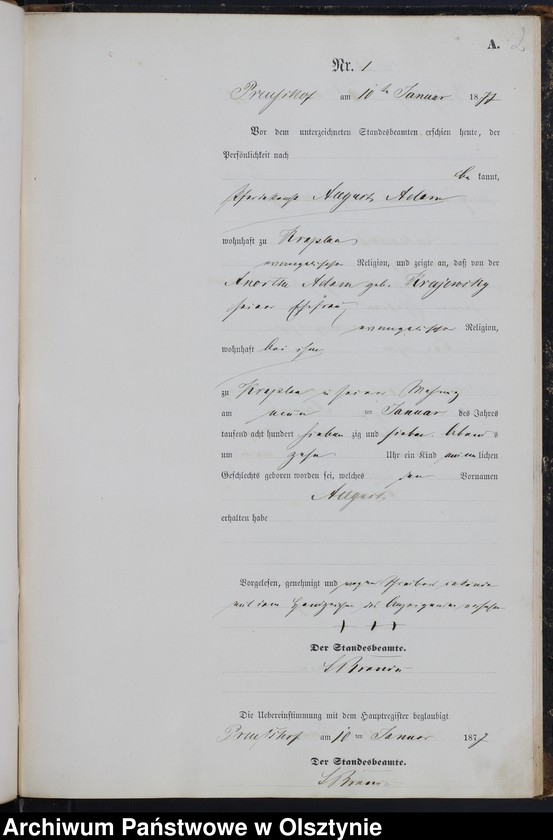 A. 2
Nr. 1
am 10ten Januar 1877
Vor dem unterzeichneten Standesbeamten erschien heute, der
Persönlichkeit nach
be kannt,
August Adam
wohnhaft zu Kraplau
evangelischer Religion, und zeigte an, daß von der
Adam geb. Krajewsky
seiner Ehefrau,
evangelischer Religion,
wohnhaft bei ihm
zu Kraplau in seiner Wohnung
am neunten Januar des Jahres
tausend acht hundert sieben zig und sieben Abends
um zehn Uhr ein Kind männlichen
Geschlechts geboren worden sei, welches den Vornamen
August
erhalten habe
Vorgelesen, genehmigt und wegen Schreibens
mit dem Handzeichen des versehen
+ + +
Der Standesbeamte.
Die Uebereinstimmung mit dem Hauptregister beglaubigt
am 10 ten Januar 1877
Der Standesbeamte.
Archiwum Państwowe w Olsztynie